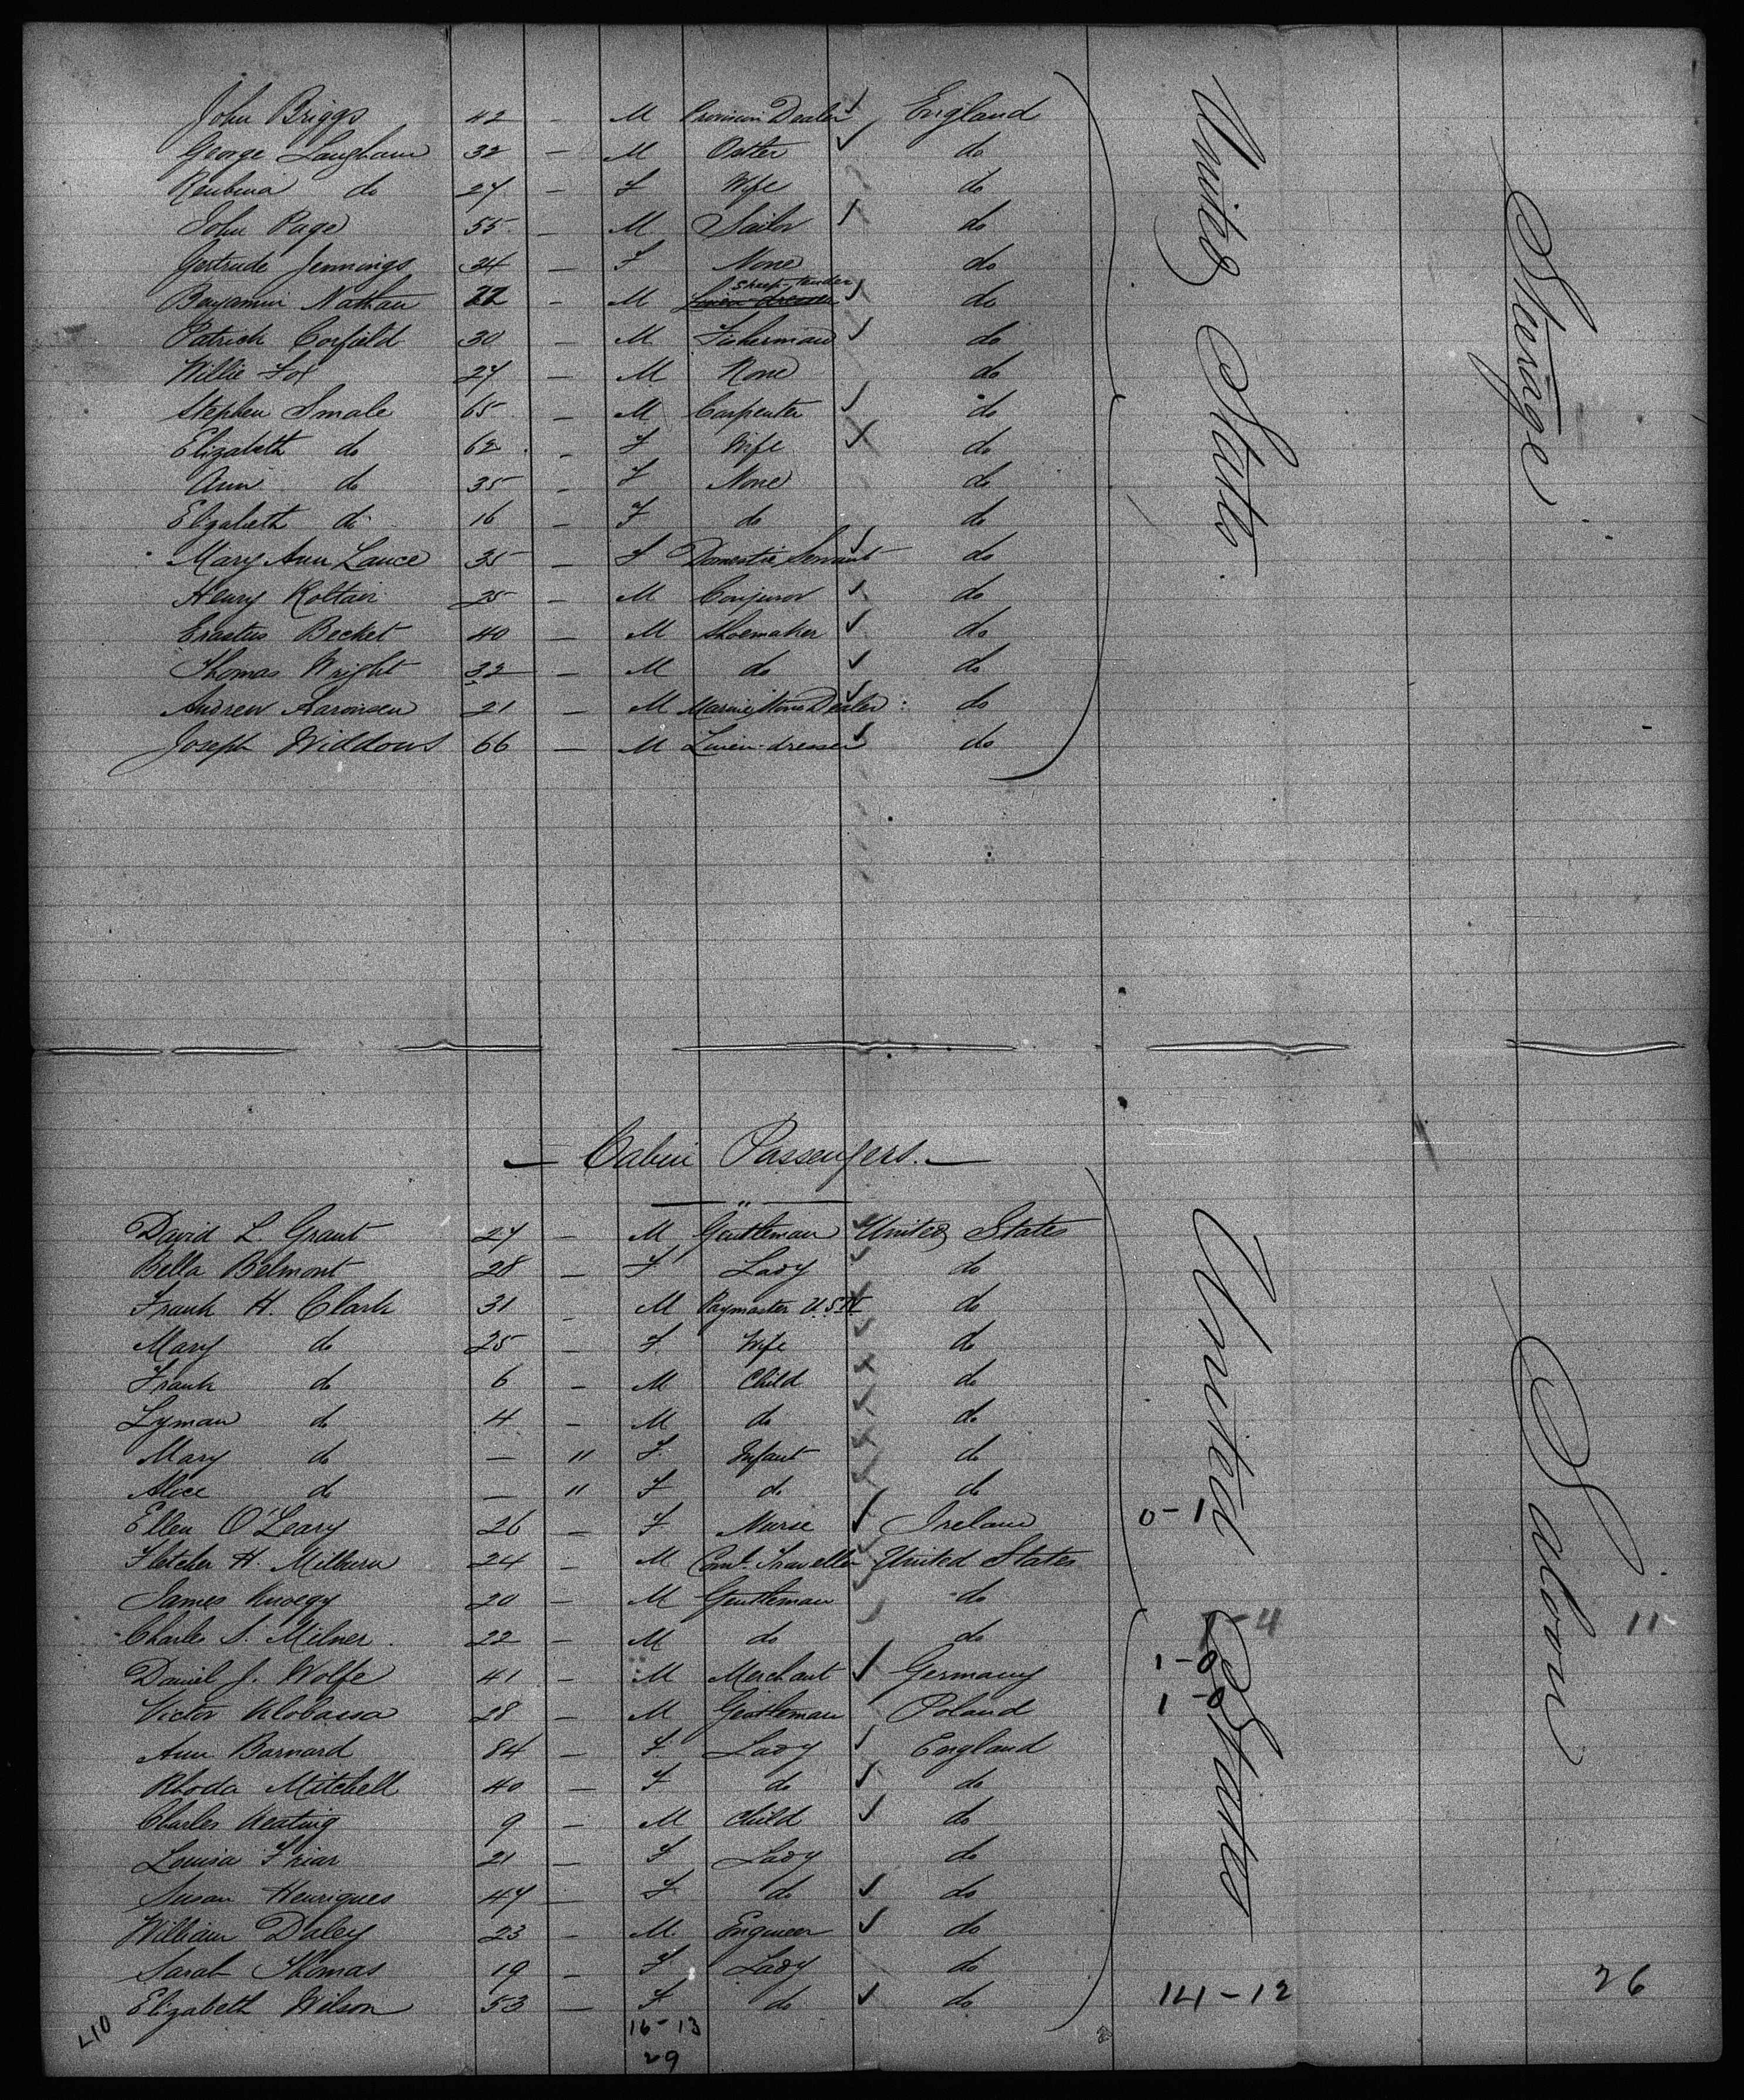 John Briggs 42 — M Provision Dealer ✓ England
George Langham 32 — M Ostler ✓ do
Reubina do 27 — F Wife do
John Page 55 — M Sailor ✓ do
Gertrude Jennings 24 — F None do
Benjamin Nathan 22 — M Linen dresser Sheep tender ✓ do
Patrick Corfield 30 — M Fisherman ✓ do
Willie Fox 27 — M None do
Stephen Smale 65 — M Carpenter ✓ do
Elizabeth do 62 — F Wife X do
Ann do 35 — F None do
Elizabeth do 16 — F do do
Mary Ann Lance 35 — F Domestic Servant ✓ do
Henry Roltair 25 — M Conjuror ✓ do
Erastus Becket 40 — M Shoemaker ✓ do
Thomas Wright 32 — M do ✓ do
Andrew Aaronsen 21 — M Marine Store Dealer ✓ do
Joseph Widdows 66 — M Linen-dresser ✓ do
United States
Steerage
— Cabin Passengers. —
David L. Grant 27 — M Gentleman ✓ United States
Bella Belmont 28 — F Lady ✓ do
Frank H. Clark 31 — M Paymaster U.S.N ✓ do
Mary do 25 — F Wife ✓ do
Frank do 6 — M Child do
Lyman do 4 — M do do
Mary do — 11 F Infant do
Alice do — 11 F do do
Ellen O'Leary 26 — F Nurse ✓ Ireland 0-1
Fletcher H. Milburn 24 — M Coml. Traveller ✓ United States
James 20 — M Gentleman do
Charles S. Milner 22 — M do do -4 11
Daniel J. Wolfe 41 — M Merchant ✓ Germany 1-0
Victor Klobassa 28 — M Gentleman Poland 1-0
Ann Barnard 84 — F Lady ✓ England
Rhoda Mitchell 40 — F do ✓ do
Charles Keating 9 — M Child ✓ do
Louisa Friar 21 — F Lady do
Susan Henriques 47 — F do ✓ do
William Daley 23 — M Engineer ✓ do
Sarah Thomas 19 — F Lady do
Elizabeth Wilson 53 — F do ✓ do 14-12 26
United States
Saloon
L10
16-13
29